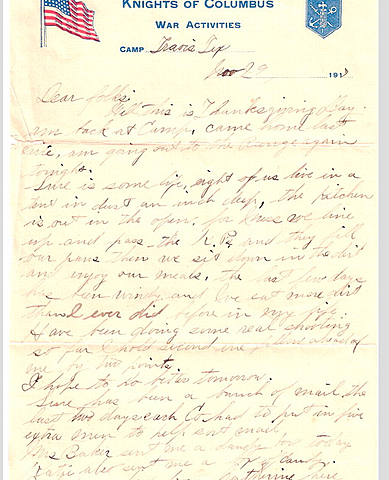 KNIGHTS OF COLUMBUS
WAR ACTIVITIES
CAMP Travis Tex
Nov 29 191
Dear folks:
Well this is Thanksgiving Day.
am back at Camp, came home last
eve, am going out to the range again
tonight.
Sure is some life, eight of us live in a
tent in dust an inch deep, the kitchen
is out in the open. for we line
up and pass the K.P.s and they fill
our pans then we sit down in the dirt
and enjoy our meals. the last few days
has been windy and I've eat more dirt
than I ever did before in my life.
Have been doing some real shooting
so far I hold second one fellow ahead of
me by two points.
I hope to do better tomorrow.
Sure has been a bunch of mail the
last two days each Co. had to put in five
extra men to help sort mail.
Mrs Baker sent me a dandy box today
Katie also sent me a of candy.
Catherine here